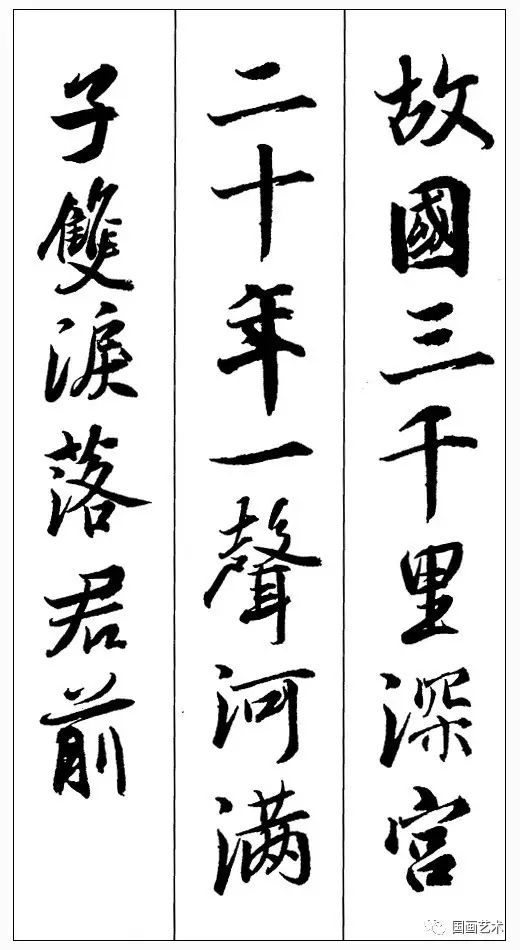 故國三千里深宫
二十年一聲河满
子雙淚落君前
国画艺术